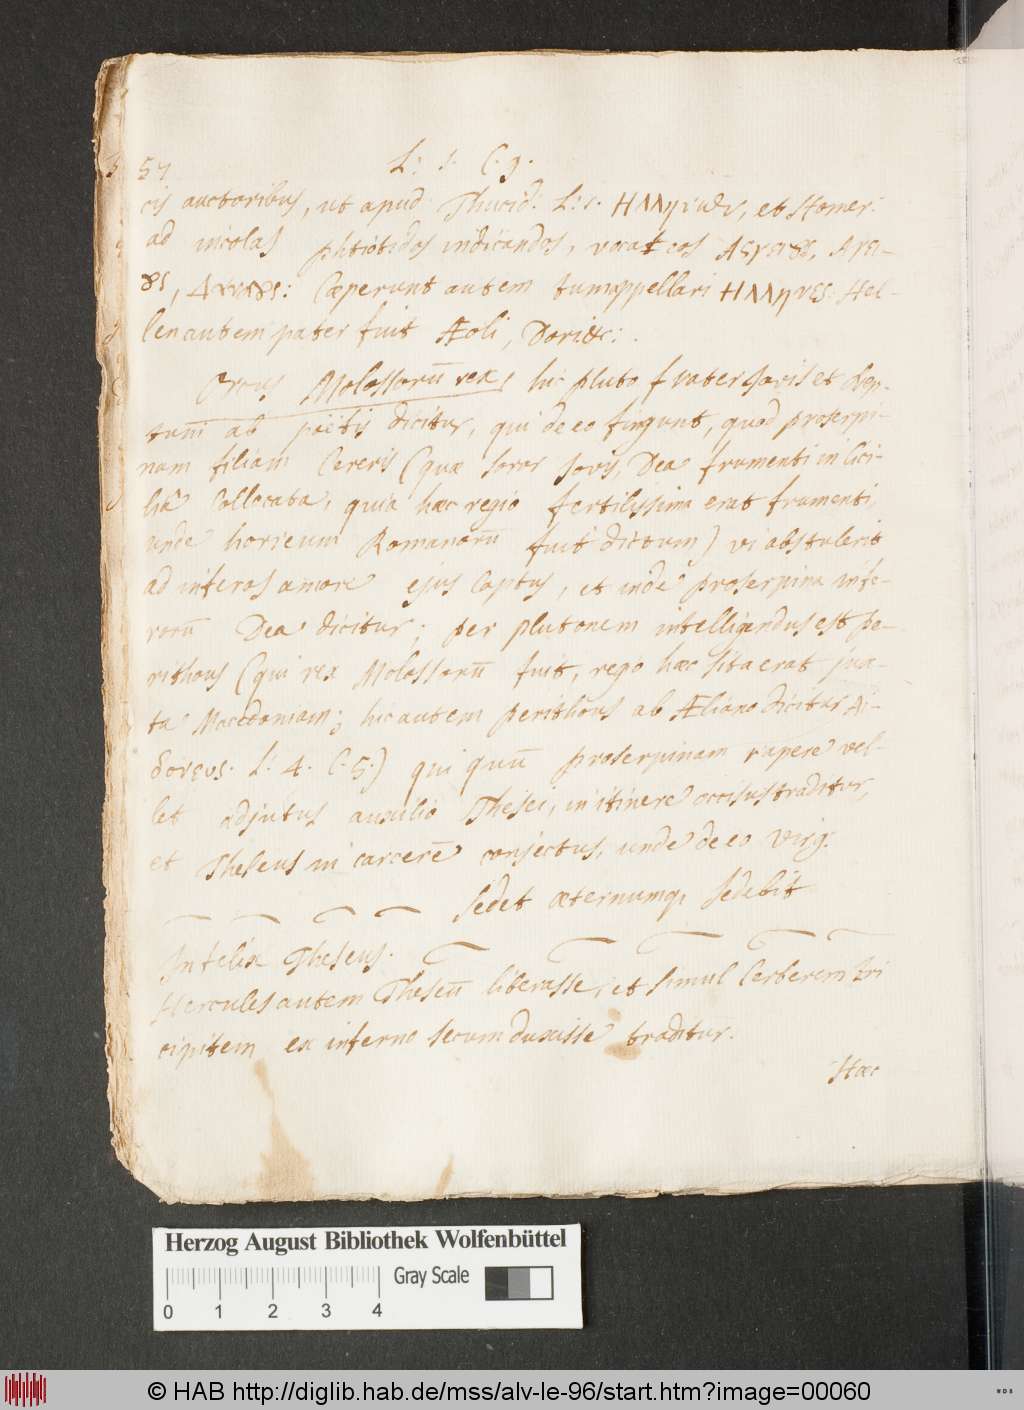 57 L: 1. C. 9.
cis auctoribus, ut apud Thucid: L: 1. et Homer:
ad incolas phtiotidos indicandos, vocat eos
Cœperunt autem tum appellari Hel-
len autem pater fuit Æoli, Dori &c:
Orcus Molossorū rex, hic pluto frater Jovis et Nep-
tuni ab poëtis dicitur, qui de eo fingunt, quod proserpi-
nam filiam Cereris (quæ soror Jovis, Dea frumenti in Sici-
liâ Collocata, quia hæc regio fertilissima erat frumenti,
unde horreum Romanorū fuit dictum) vi abstulerit
ad inferos amore ejus Captus, et inde proserpina infe-
rorū Dea dicitur; per plutonem intelligendus est pe-
rithous (qui rex Molossorū fuit, regio hæc sita erat jux-
ta Macedoniam; hic autem perithous ab Æliano dicitur Ἀι-
δονευς. L: 4. C. 5.) qui quū proserpinam rapere vel-
let adjutus auxilio Thesei, in itinere occisus traditur,
et Theseus in carcerē conjectus, unde de eo Virg:
sedet æternumq, sedebit
Infelix Theseus.
Hercules autem Theseū liberasse, et simul Cerberem tri
cipitem ex inferno secum duxisse traditur.
Hæc
Herzog August Bibliothek Wolfenbüttel
Gray Scale
0 1 2 3 4
© HAB http://diglib.hab.de/mss/alv-le-96/start.htm?image=00060